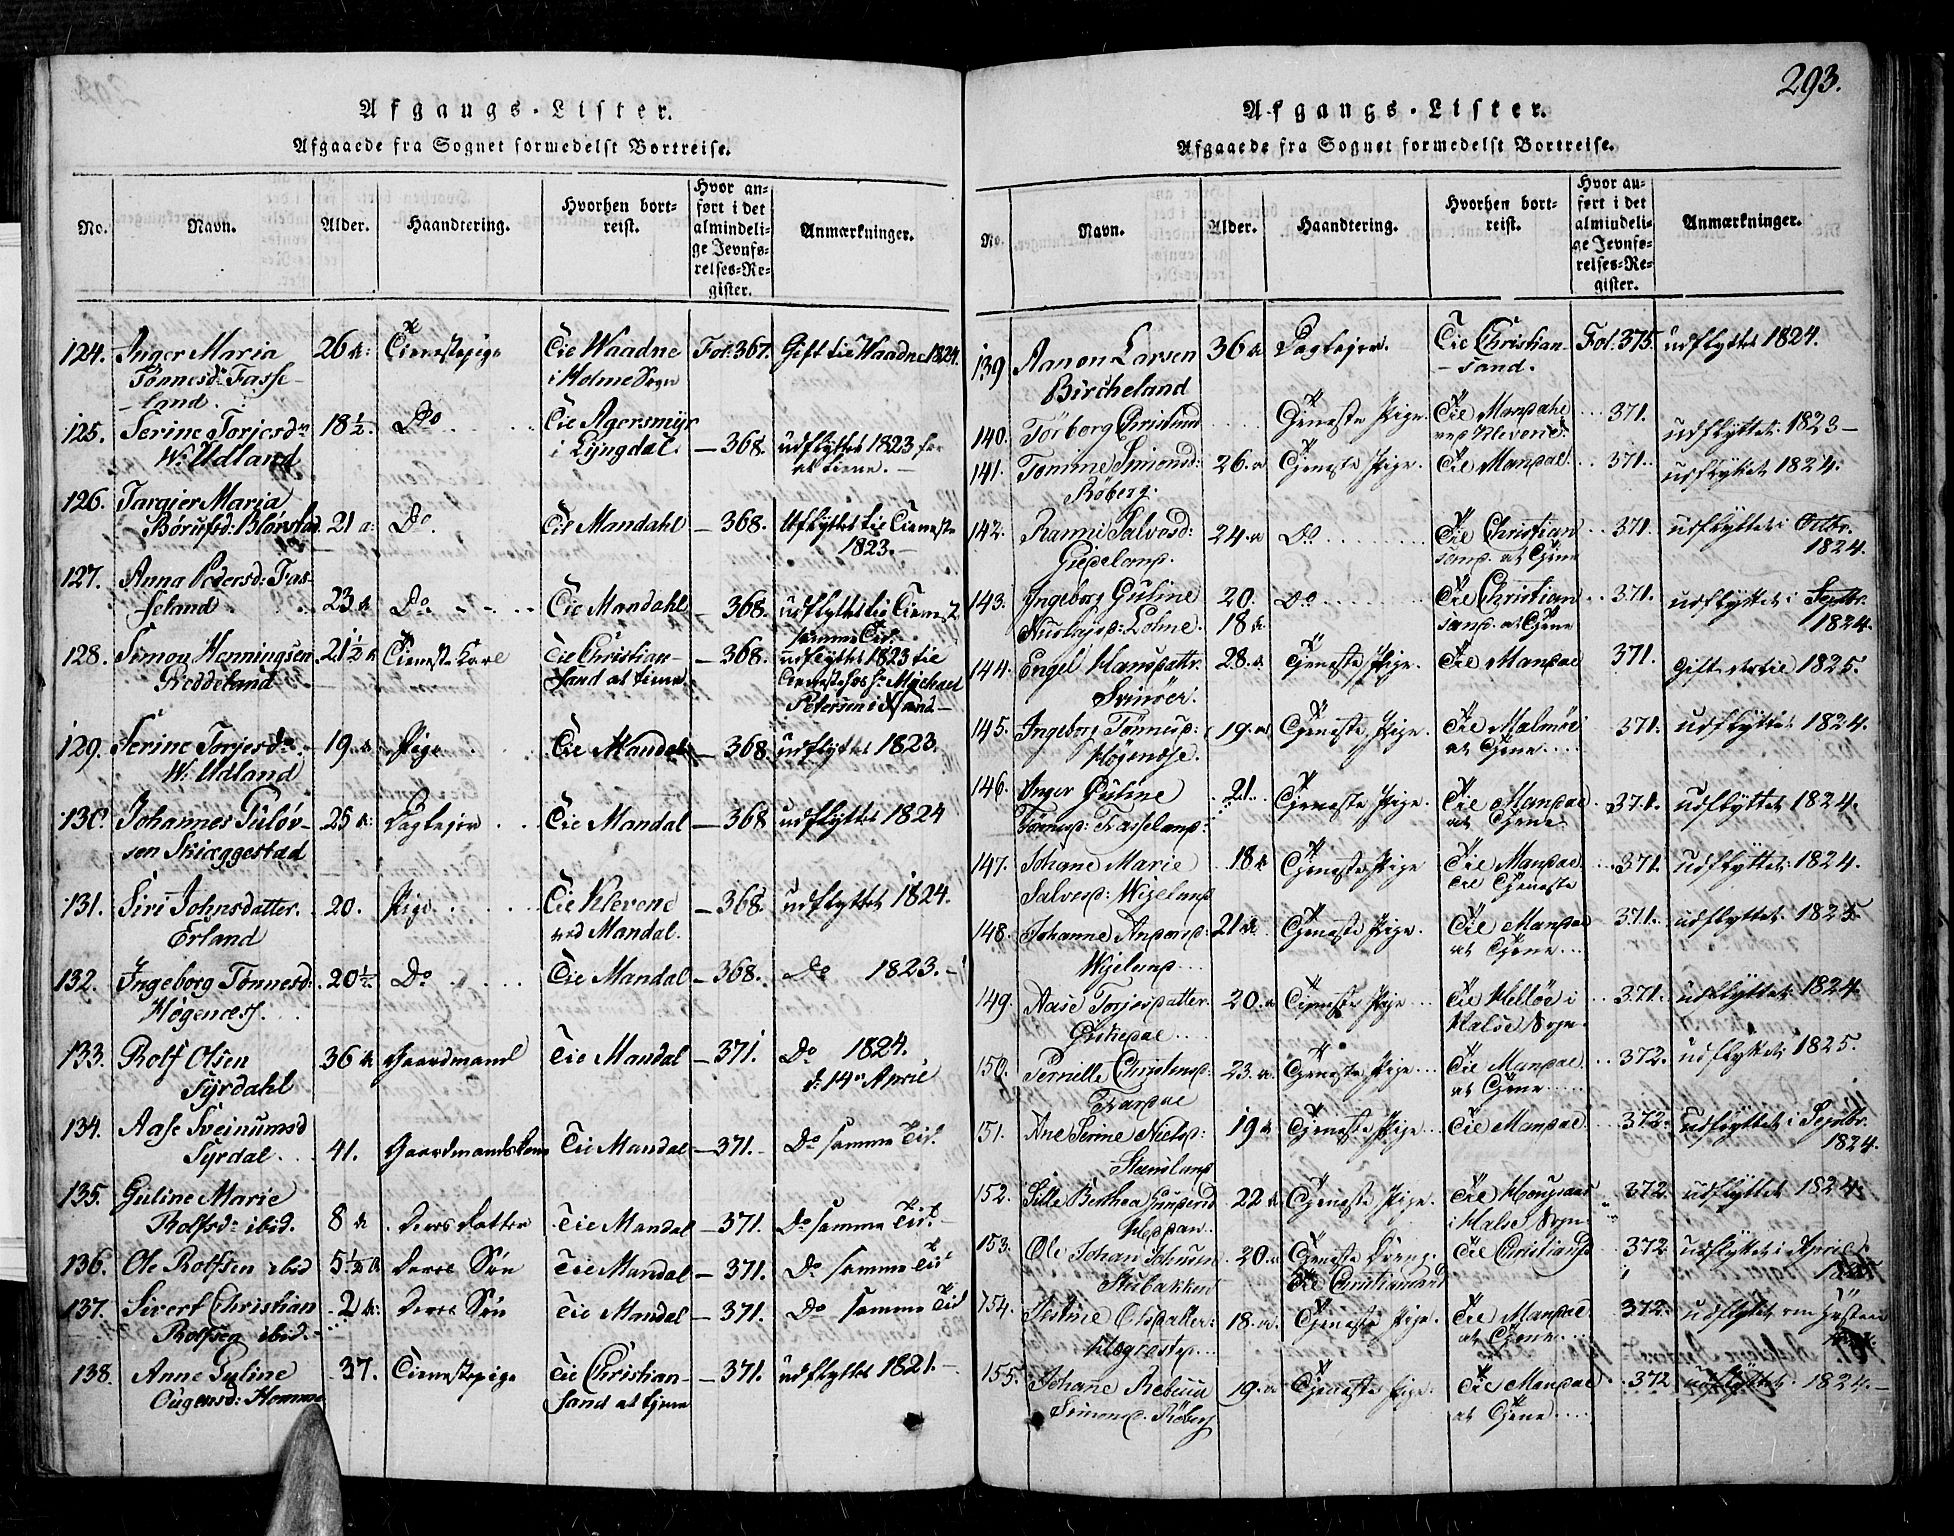 Afgangs-Lister.
Afgaaede fra Sognet formedelst Bortreise.
No. Navn. Alder. Haandtering. Hvorhen bortreist. Hvor anført i det almindelige Jevnførelses-Register. Anmærkninger.
124. Inger Maria 26 a: Tienestepige Til Waadne Fol: 367. Gift til Waadne 1824.
Tønnesd: Fasse- i Holme Sogn
land.
125. Serine Torjesdr 18½. Do Til Agersmyr
W: Udland i Lyngdal. — 368. udflyttet 1823 for
at tiene. —
126. Targier Maria
Børufsd: Blørstad 21 a: Do. Til Mandahl — 368. Udflyttet til Tieneste
1823. —
127. Anna Pedersd: Fas-
seland 23 a Do. Til Mandahl — 368. udflyttet til Tienest
samme Tid.
128. Simon Henningsen 21½ a Tieneste Karl Til Christian- — 368. udflyttet 1823 til
Reddeland Sand at tiene Tieneste hos Hr Michael
Petersen i X Sand —
129. Serine Torjesdr 19 a Pige Til Mandal — 368. udflyttet 1823.
W: Udland
130. Johannes Guløv- 25 a: Til Mandal — 368 udflyttet 1824
sen Skiæggestad
131. Siri Johnsdatter. 20. Pige Til Klevene — 368. udflyttet 1824.
Erland ved Mandal.
132. Ingeborg Tønnesd: 20½ Do Til Mandal — 368. Do 1823. —
Høgenæss.
133. Rolf Olsen 36 a Gaardmand Til Mandal — 371. Do 1824.
Syrdahl d: 14de April
134. Aase Sveinumsd
Syrdal. 41. Gaardmandskone Til Mandal — 371. Do samme Tid.
135. Guline Marie
Rolfsdr ibid. 8 a Deres Datter Til Mandal — 371. Do samme Tid.
136. Ole Rolfsen ibid 5½ a Deres Søn Til Mandal — 371. Do samme Tid
137. Sivert Christian 2 a: Deres Søn Til Mandal — 371. Do samme Tid
Rolfsen ibid.
138. Anne Guline 37. Tienestepige Til Christian- — 371. udflyttet 1821. —
Ougensd: Homme sand at tiene
293.
Afgangs-Lister.
Afgaaede fra Sognet formedelst Bortreise.
No. Navn. Alder. Haandtering. Hvorhen bortreist. Hvor anført i det almindelige Jevnførelses-Register. Anmærkninger.
139 Aanon Larsen 36 a Til Christian- Fol: 375. udflyttet 1824.
Bircheland sand.
140. Tørborg Christensd Tjeneste Pige. Til Mandahl 371.
ved Klevene. udflyttet 1823 —
141. Tomine Simonsd: 26. a Tjeneste Pige. Til Mandal. 371. udflyttet 1824.
Røberg.
142. Ranni Salvesd: 24. a Do Til Christian 371. udflyttet i Octbr.
Giedeland. sand. at Tjene 1824.
143. Ingeborg Guline 20. Do Til Christian 371. udflyttet i Septbr.
Lohne. 18 a sand. at Tjene 1824.
144. Engel Hansdattr. 28. a Tjeneste Pige. Til Mandal 371. Gift 1825.
Svinøer.
145. Ingeborg Tønnesd: 19. a Tjeneste Pige. Til Malmøe 371. udflyttet 1824.
Høgenæss. at Tjene
146. Inger Guline 21. Tjeneste Pige. Til Mandal 371. udflyttet 1824.
Tønnesd: Fasseland: at Tjene
147. Johane Marie 18 a Tjeneste Pige Til Mandal 371. udflyttet 1824.
Salvesd: Wigeland til Tjeneste
148. Johanne Andersd: 21 a Tjeneste Pige. Til Mandal 371. udflyttet 1825.
Wigeland at Tjene
149. Aase Torjesdatter 20. a Tjeneste Pige Til Hilløe i 371. udflyttet 1824.
Eschedal Halse Sogn.
150. Pernille Christensd: 23. a Tjeneste Pige Til Mandal 372. udflyttet 1825.
Fardal at Tjene
151. Ane Serine Nielsd: 19 a Tjeneste Pige Til Mandal 372. udflyttet i Septbr.
Steensland 1824.
152. Sille Berthea Gundersd 22 a Tjeneste Pige. Til 372. udflyttet 1824.
i Halse Sogn
153. Ole Johan 20. a Tjeneste Dreng. Til Christiansd 372 udflyttet i April
Stusbakken Til Christiansand
154. Olsdatter: 18. a. Tjeneste Pige. Til Mandal 372. udflyttet om Høsten
Høgrestø at Tjene
155. Johane 19. a Tjeneste Pige. Til Mandal 372 udflyttet 1824. —
Simonsd. Røberg at Tjene